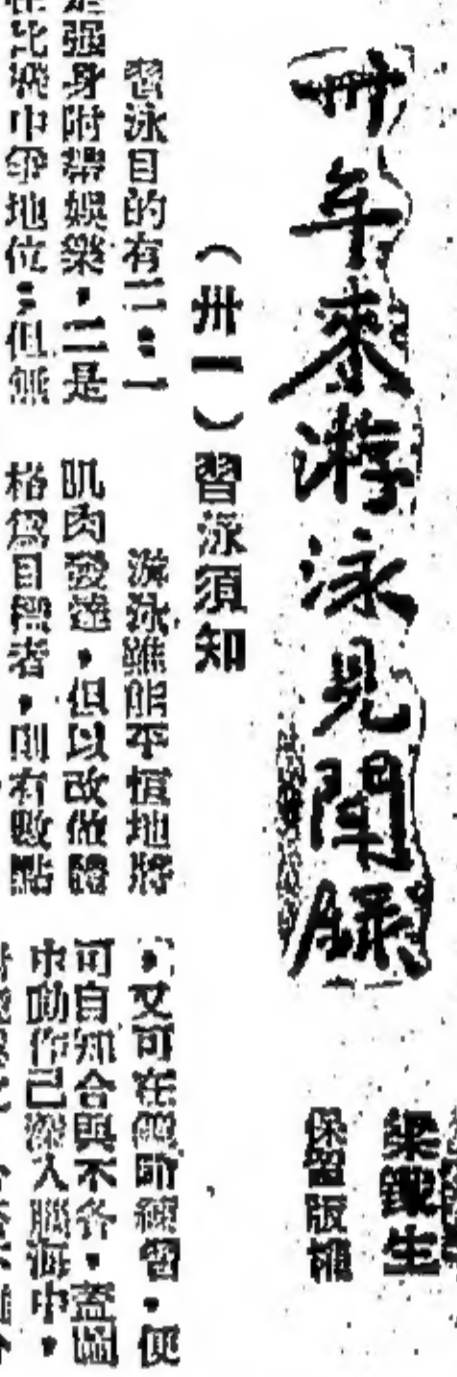 卅年來游泳見聞錄
梁鐵生
保留版權
(卅一)習泳須知
習泳目的有二:一
是强身附帶娛樂,二是
在比賽中爭地位;但無
游泳雖能平恒地將
肌肉發達,但以改做體
格為目標者,則有數點
,又可在鏡前練習,便
可自知合與不合,蓋腦
中動作已深入腦海中,